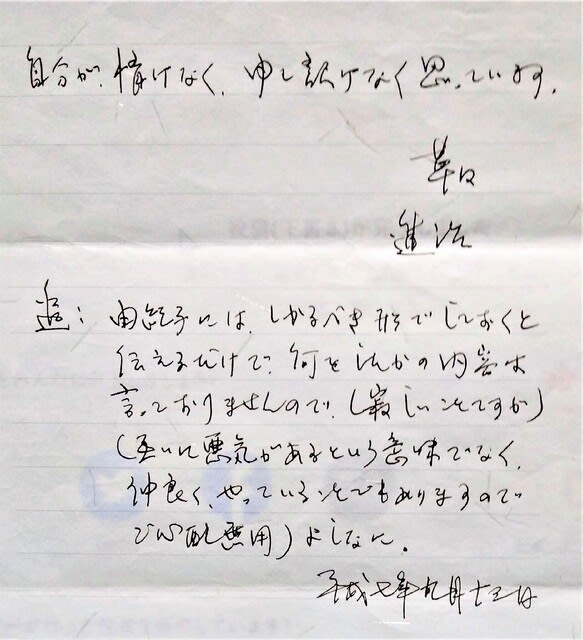 自分が、情けなく、申し訳けなく思っています。
草々
進治
追: 由紀子には、しかるべき形でしておくと
伝えるだけで、何をしたかの内容は
言っておりませんので、(寂しいことですが)
(互いに悪気があるという意味でなく、
仲良く、やっていることでもありますので
ご心配無用)よしなに。
平成七年九月十三日